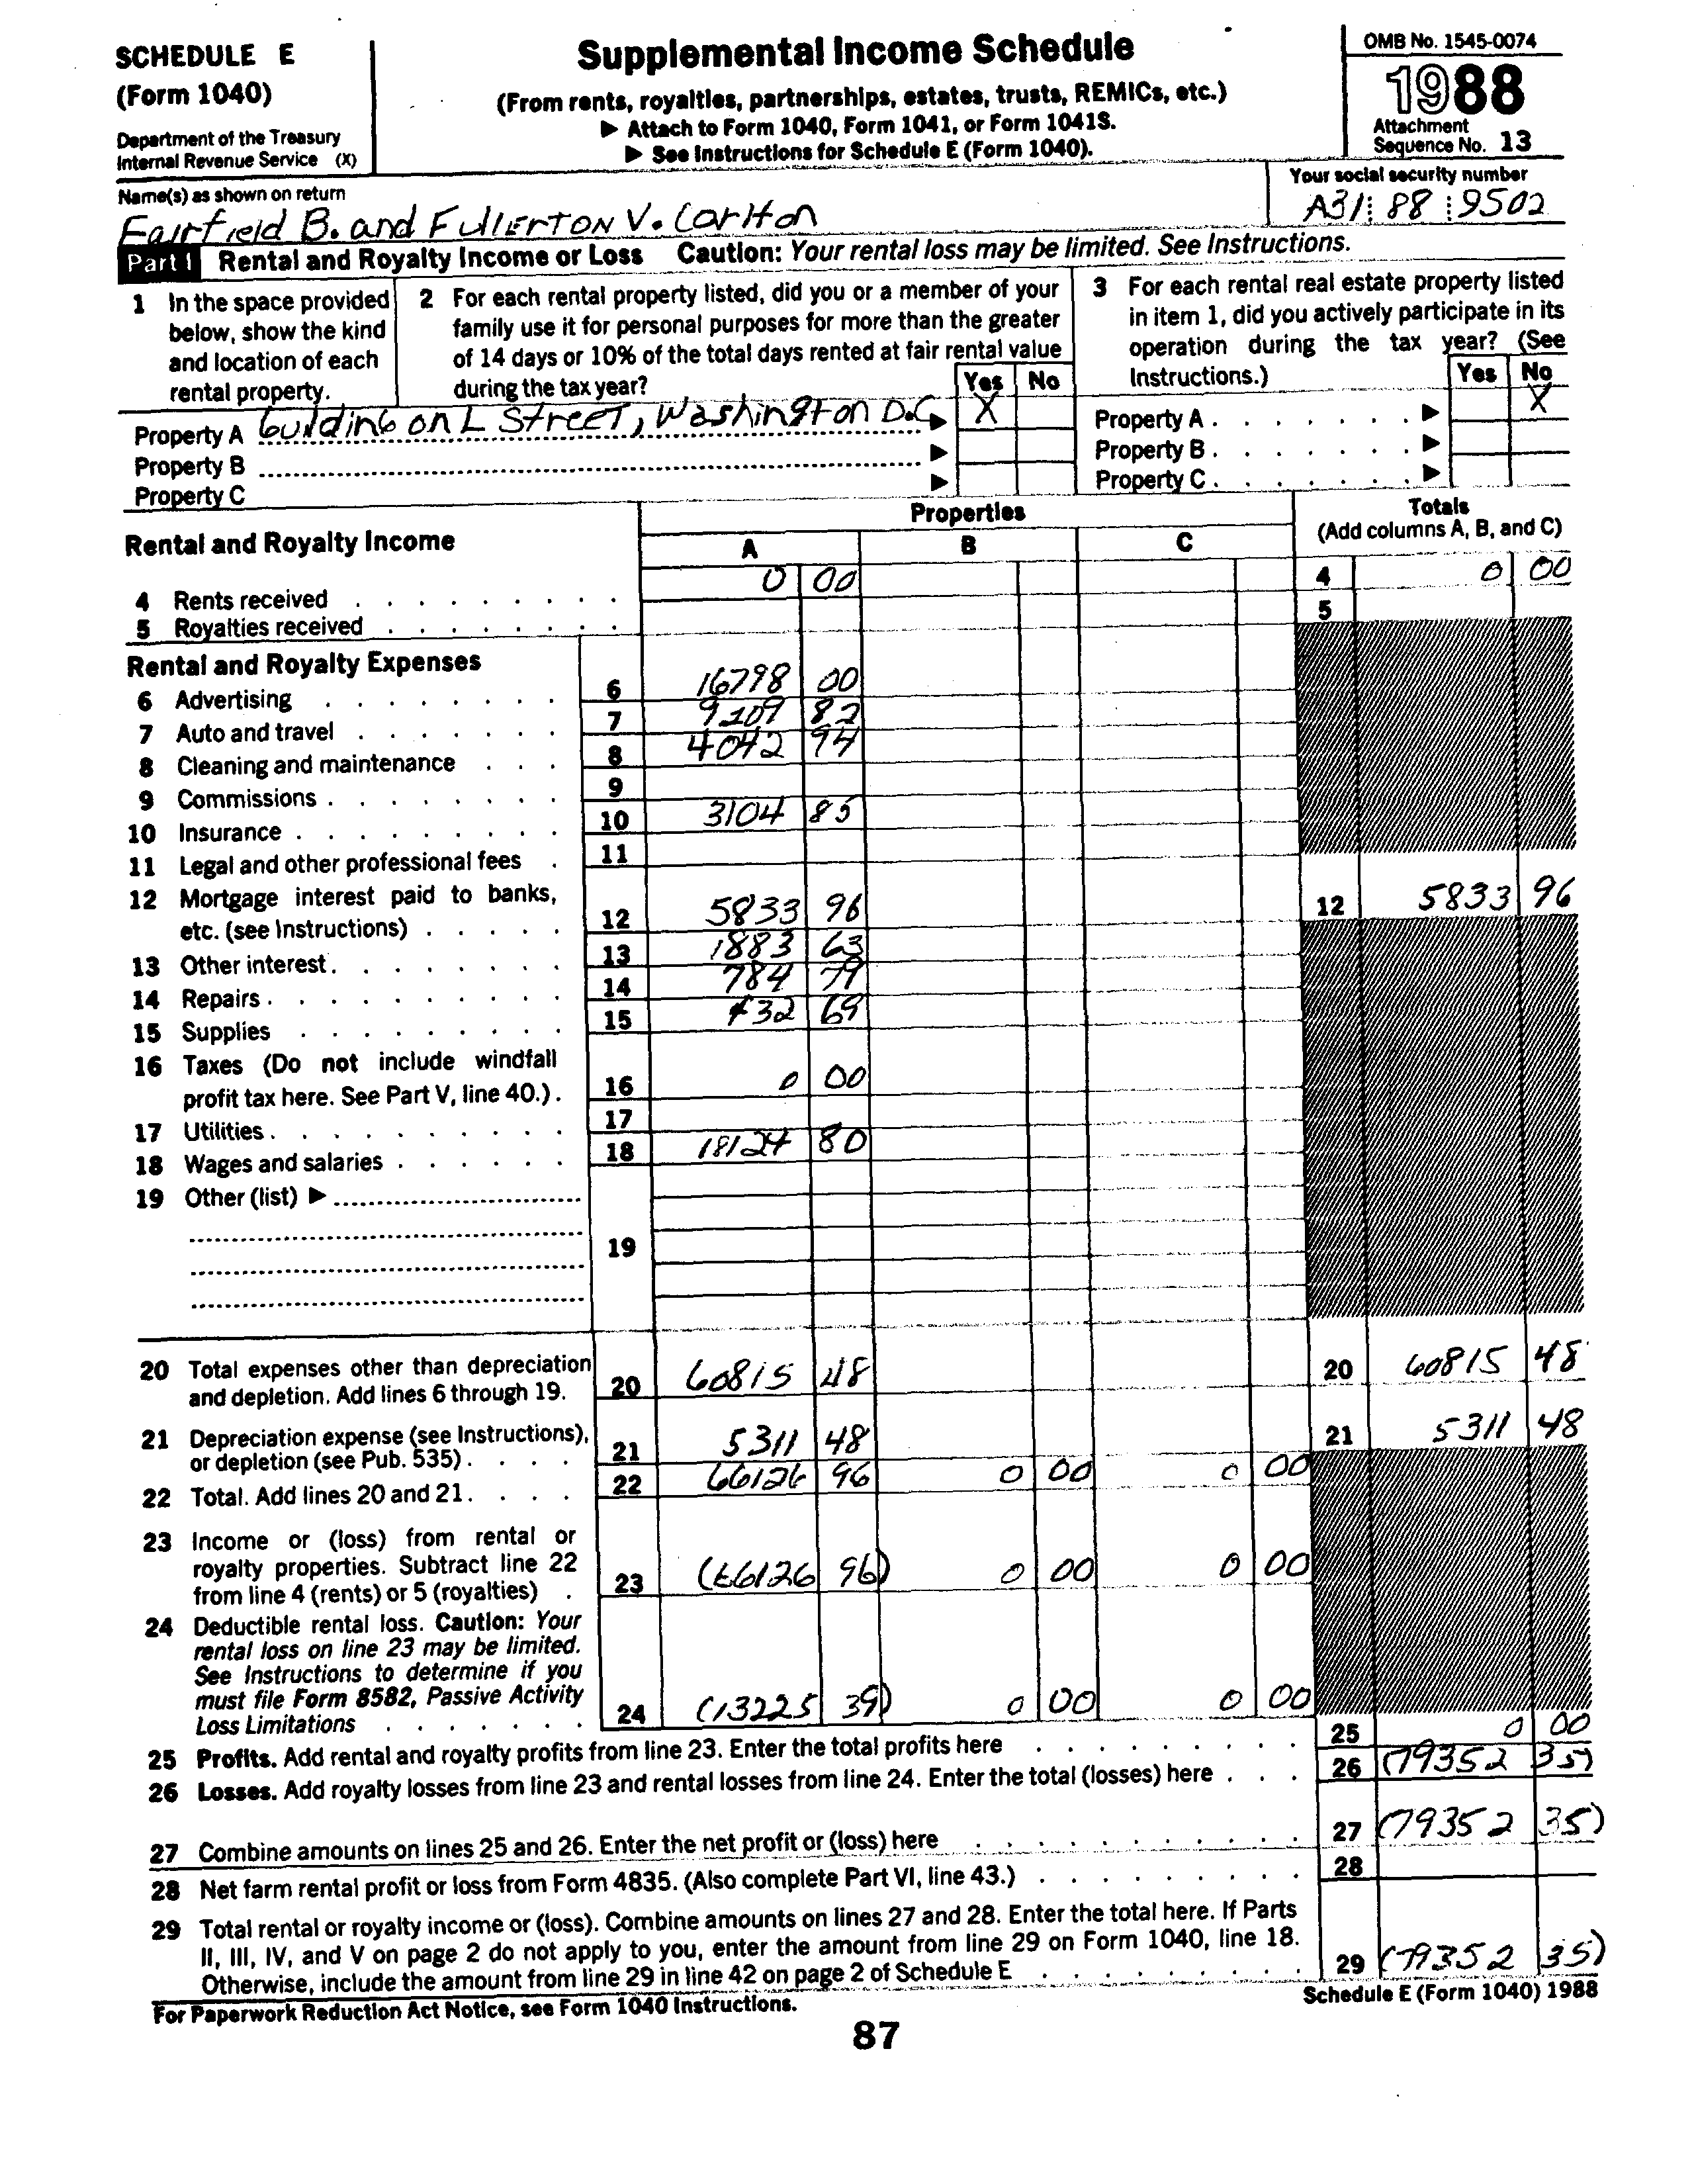 SCHEDULE E
(Form 1040)
Department of the Treasury
Internal Revenue Service (X)
Supplemental Income Schedule
(From rents, royalties, partnerships, estates, trusts, REMICs, etc.)
▶ Attach to Form 1040, Form 1041, or Form 1041S.
▶ See Instructions for Schedule E (Form 1040).
OMB No. 1545-0074
1988
Attachment
Sequence No. 13
Name(s) as shown on return
Fairfield B. and FUllERTON V. Carlton
Your social security number
A31 88 9502
Part I Rental and Royalty Income or Loss Caution: Your rental loss may be limited. See Instructions.
1 In the space provided
below, show the kind
and location of each
rental property.
2 For each rental property listed, did you or a member of your
family use it for personal purposes for more than the greater
of 14 days or 10% of the total days rented at fair rental value
during the tax year?
Yes No
3 For each rental real estate property listed
in item 1, did you actively participate in its
operation during the tax year? (See
Instructions.)
Yes No
Property A building on L STreeT, Washington D.C. ▶ X
Property B ▶
Property C ▶
Property A ▶ X
Property B ▶
Property C ▶
Rental and Royalty Income
Properties
A B C
Totals
(Add columns A, B, and C)
4 Rents received 0 00 4 0 00
5 Royalties received 5
Rental and Royalty Expenses
6 Advertising 6 16798 00
7 Auto and travel 7 9109 82
8 Cleaning and maintenance 8 4042 94
9 Commissions 9
10 Insurance 10 3104 85
11 Legal and other professional fees 11
12 Mortgage interest paid to banks,
etc. (see Instructions) 12 5833 96 12 5833 96
13 Other interest 13 1883 63
14 Repairs 14 784 79
15 Supplies 15 432 69
16 Taxes (Do not include windfall
profit tax here. See Part V, line 40.) 16 0 00
17 Utilities 17
18 Wages and salaries 18 18124 80
19 Other (list) ▶
19
20 Total expenses other than depreciation
and depletion. Add lines 6 through 19. 20 60815 48 20 60815 48
21 Depreciation expense (see Instructions),
or depletion (see Pub. 535) 21 5311 48 21 5311 48
22 Total. Add lines 20 and 21 22 66126 96 0 00 0 00
23 Income or (loss) from rental or
royalty properties. Subtract line 22
from line 4 (rents) or 5 (royalties) 23 (66126 96) 0 00 0 00
24 Deductible rental loss. Caution: Your
rental loss on line 23 may be limited.
See Instructions to determine if you
must file Form 8582, Passive Activity
Loss Limitations 24 (13225 39) 0 00 0 00
25 Profits. Add rental and royalty profits from line 23. Enter the total profits here 25 0 00
26 Losses. Add royalty losses from line 23 and rental losses from line 24. Enter the total (losses) here 26 (79352 35)
27 Combine amounts on lines 25 and 26. Enter the net profit or (loss) here 27 (79352 35)
28 Net farm rental profit or loss from Form 4835. (Also complete Part VI, line 43.) 28
29 Total rental or royalty income or (loss). Combine amounts on lines 27 and 28. Enter the total here. If Parts
II, III, IV, and V on page 2 do not apply to you, enter the amount from line 29 on Form 1040, line 18.
Otherwise, include the amount from line 29 in line 42 on page 2 of Schedule E 29 (79352 35)
For Paperwork Reduction Act Notice, see Form 1040 Instructions.
Schedule E (Form 1040) 1988
87